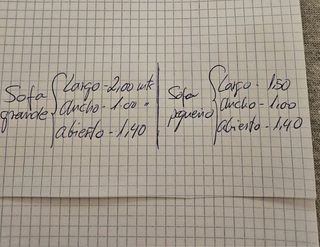 Sofa grande
Largo - 2,00 mts
Ancho - 1.00 "
Abierto - 1,40
Sofa pequeño
Largo - 1,50
Ancho - 1,00
Abierto - 1,40